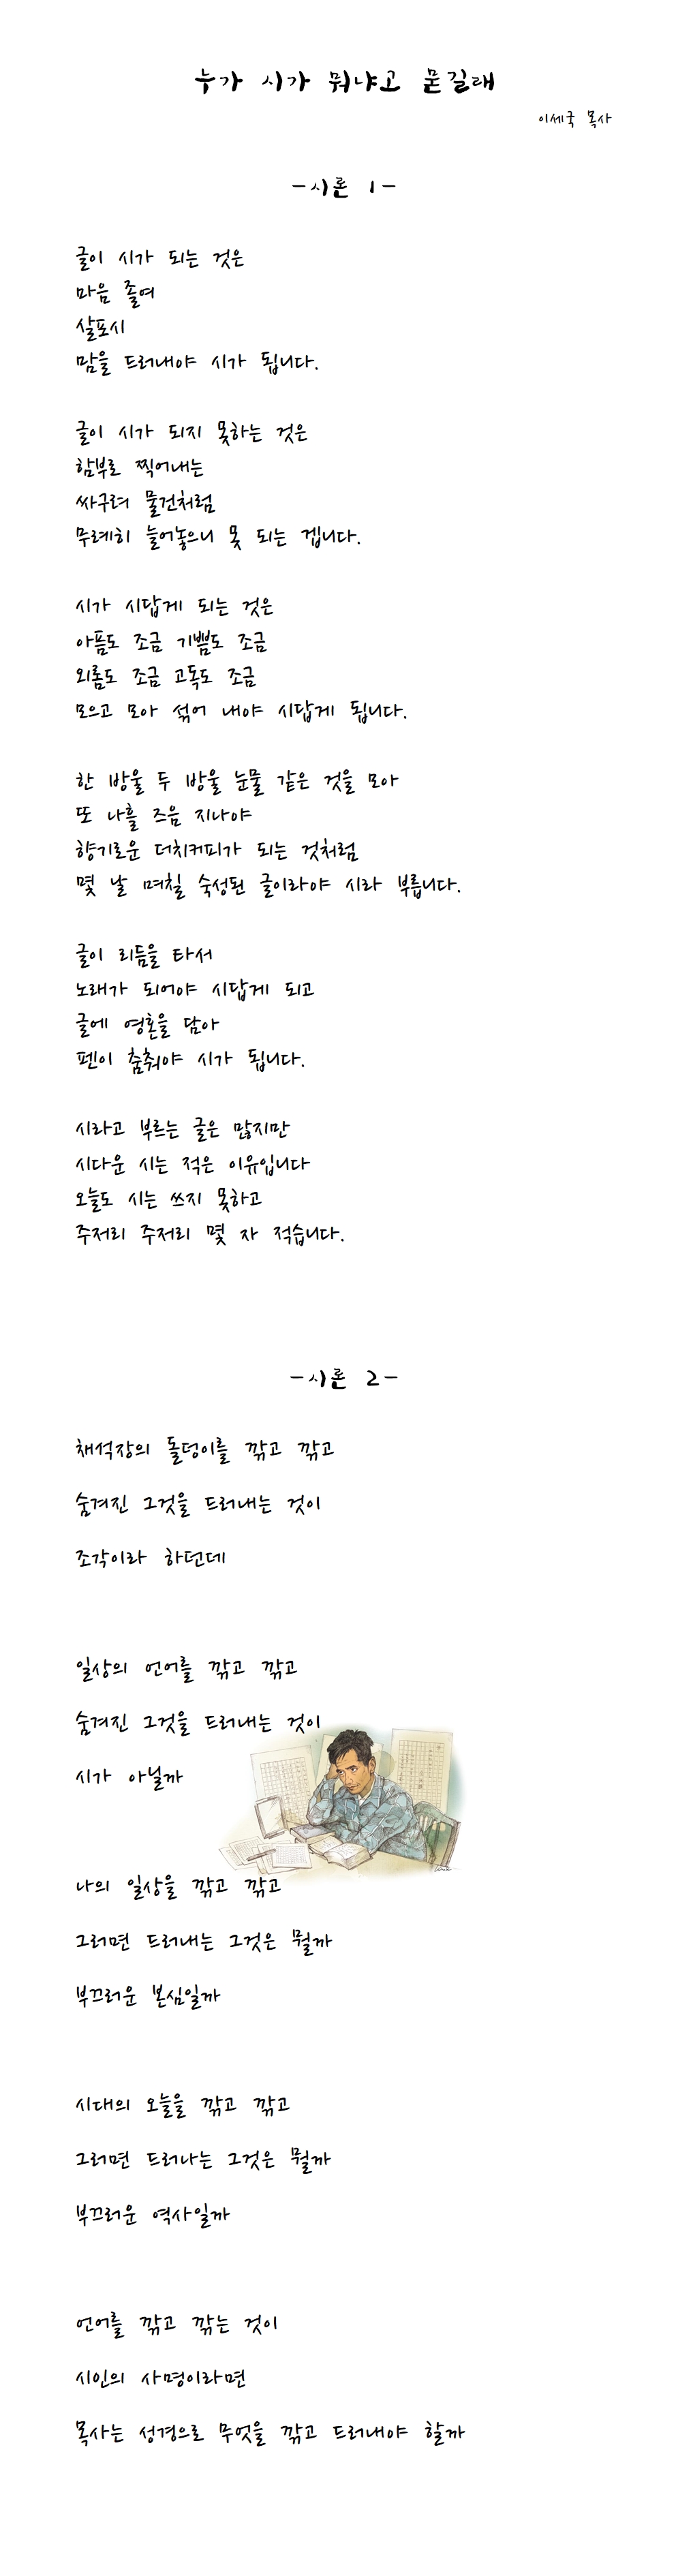 누가 시가 뭐냐고 묻길래
이세국 목사
-시론 1-
글이 시가 되는 것은
마음 졸여
살포시
맘을 드러내야 시가 됩니다.
글이 시가 되지 못하는 것은
함부로 찍어내는
싸구려 물건처럼
무례히 늘어놓으니 못 되는 겝니다.
시가 시답게 되는 것은
아픔도 조금 기쁨도 조금
외롬도 조금 고독도 조금
모으고 모아 섞어 내야 시답게 됩니다.
한 방울 두 방울 눈물 같은 것을 모아
또 나흘 즈음 지나야
향기로운 더치커피가 되는 것처럼
몇 날 며칠 숙성된 글이라야 시라 부릅니다.
글이 리듬을 타서
노래가 되어야 시답게 되고
글에 영혼을 담아
펜이 춤춰야 시가 됩니다.
시라고 부르는 글은 많지만
시다운 시는 적은 이유입니다
오늘도 시는 쓰지 못하고
주저리 주저리 몇 자 적습니다.
-시론 2-
채석장의 돌덩이를 깎고 깎고
숨겨진 그것을 드러내는 것이
조각이라 하던데
일상의 언어를 깎고 깎고
숨겨진 그것을 드러내는 것이
시가 아닐까
나의 일상을 깎고 깎고
그러면 드러내는 그것은 뭘까
부끄러운 본심일까
시대의 오늘을 깎고 깎고
그러면 드러나는 그것은 뭘까
부끄러운 역사일까
언어를 깎고 깎는 것이
시인의 사명이라면
목사는 성경으로 무엇을 깎고 드러내야 할까